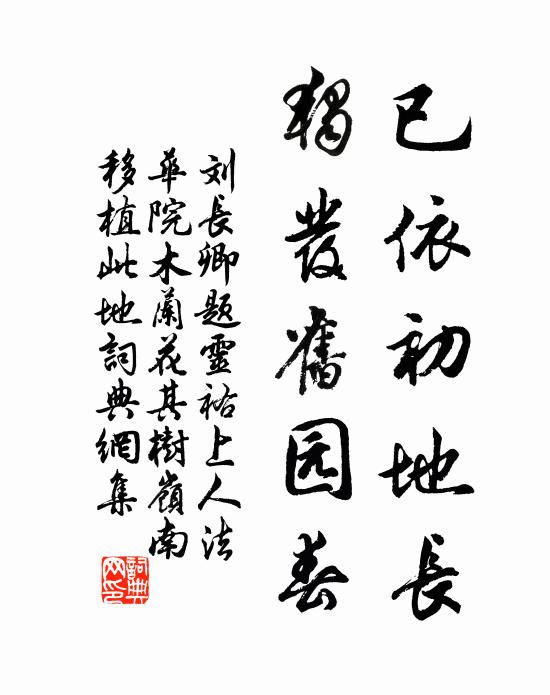 已依初地長
獨發舊园春
刘長卿題靈祐上人法
華院木蘭花其樹嶺南
移植此地詞典網集
詞典网印